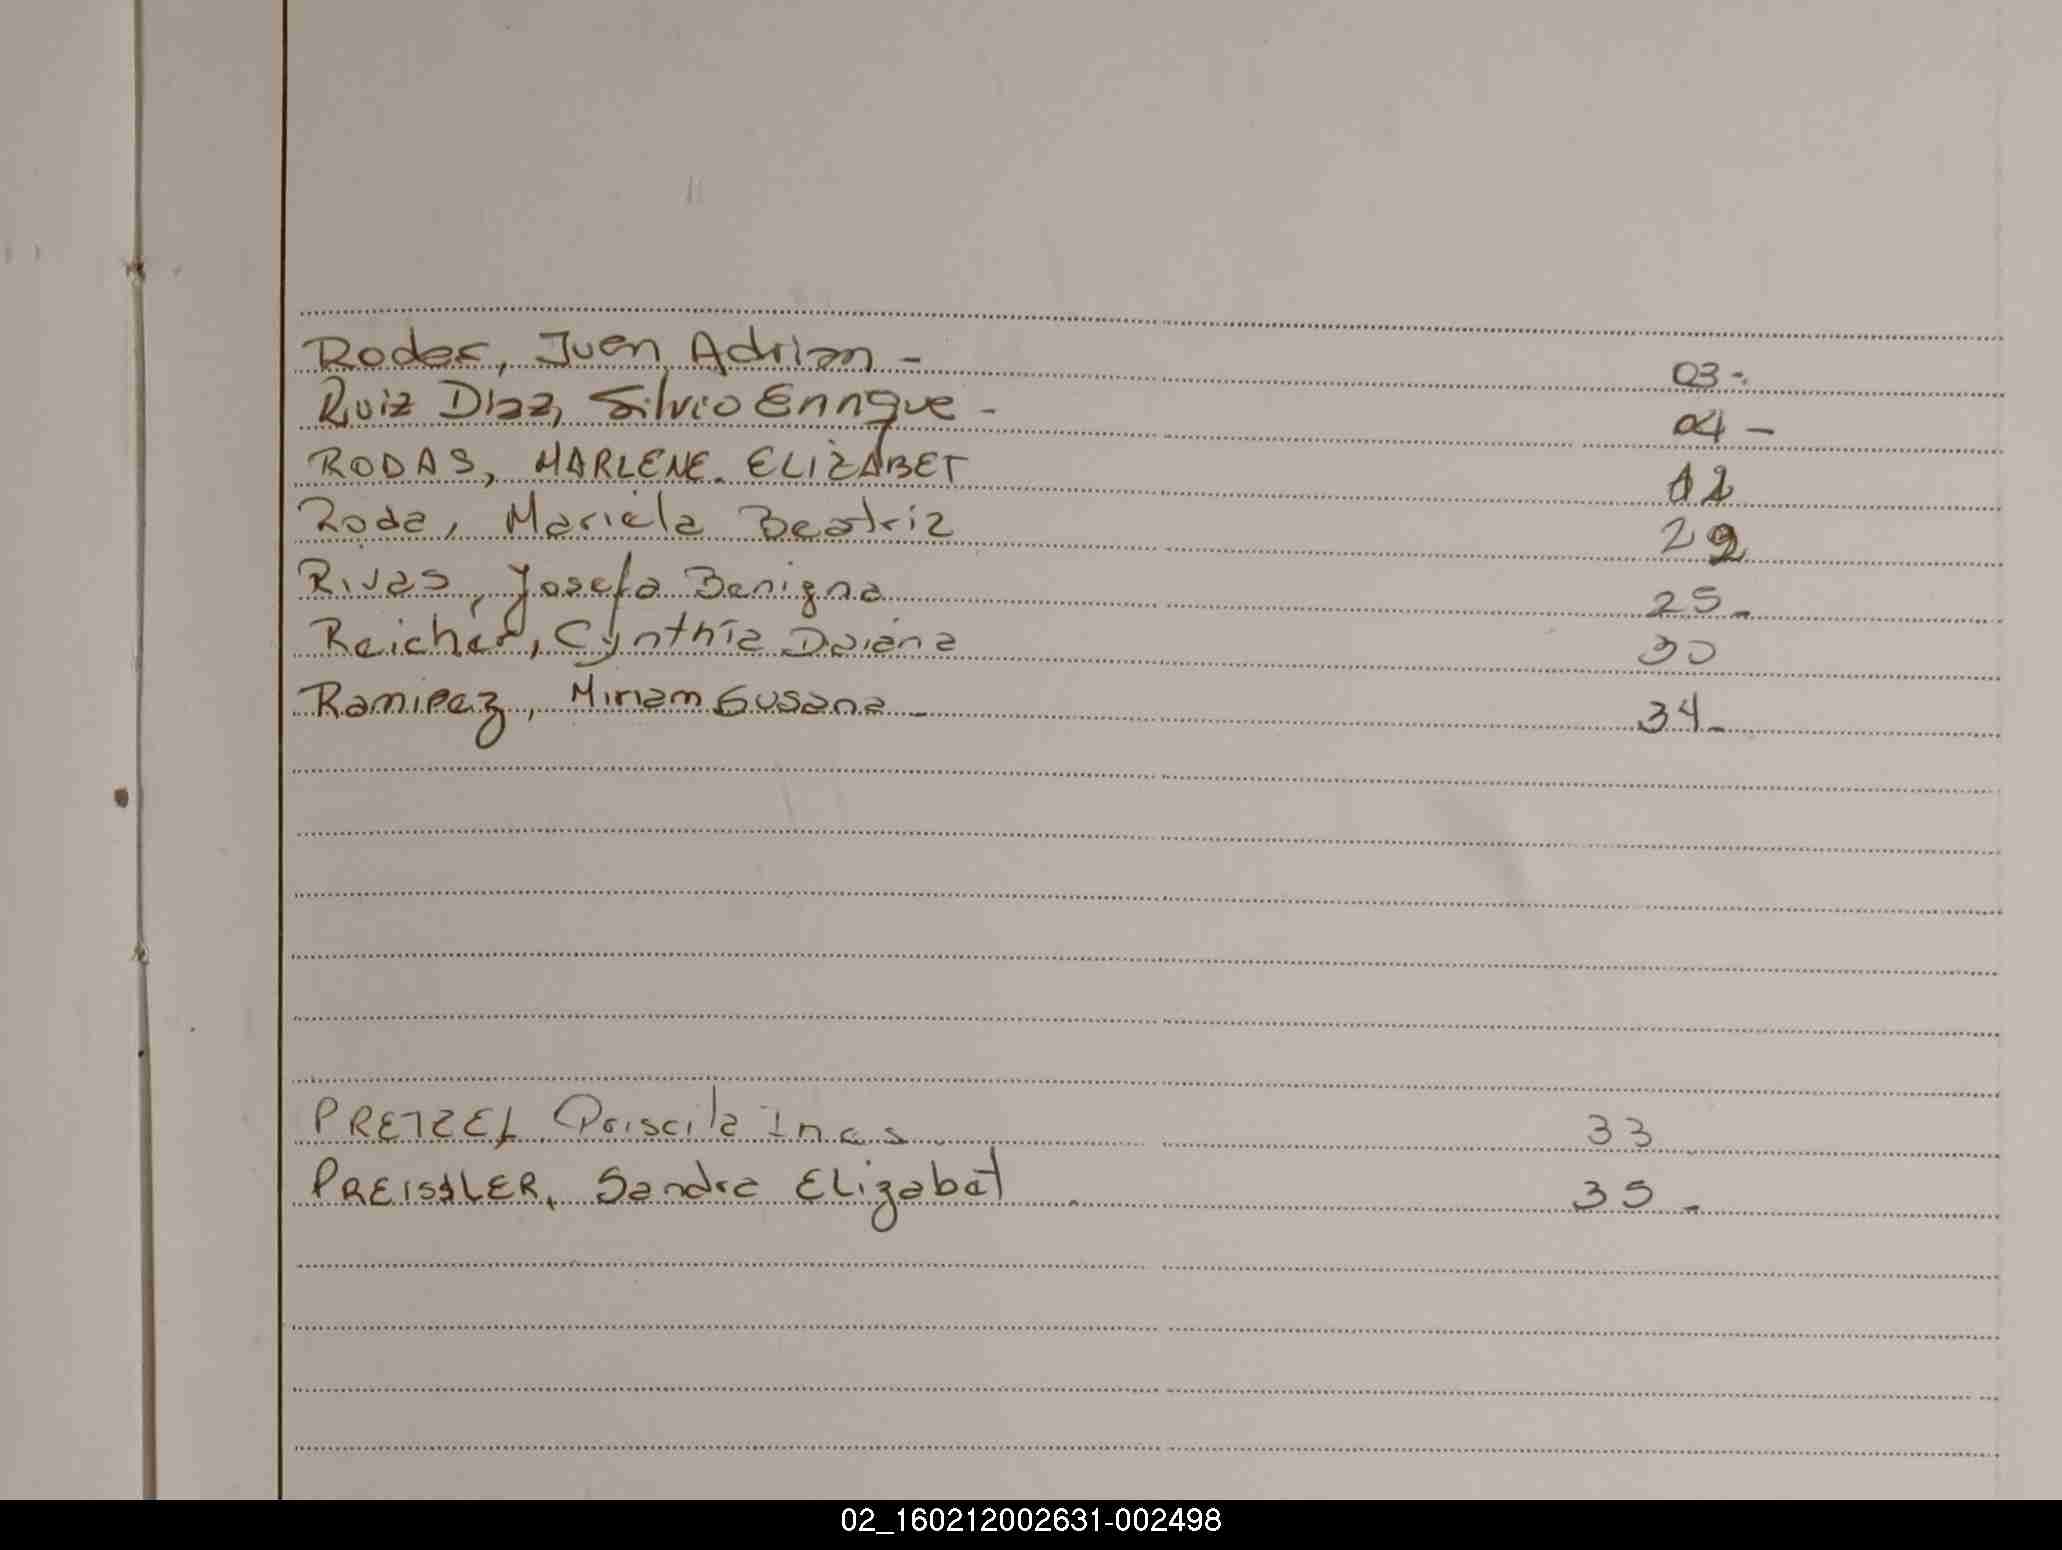 Rodas, Juan Adrian - 03-.
Ruiz Diaz, Silvio Enrique - 04 -
RODAS, MARLENE. ELIZABET 12
Roda, Mariela Beatriz 29
Rivas, Josefa Benigna 25-
Reichér, Cynthia Daiana 30
Ramirez, Miriam Susana - 34-
PRETZEL, Priscila Ines. 33
PREISSLER, Sandra Elizabet . 35 -
02_160212002631-002498